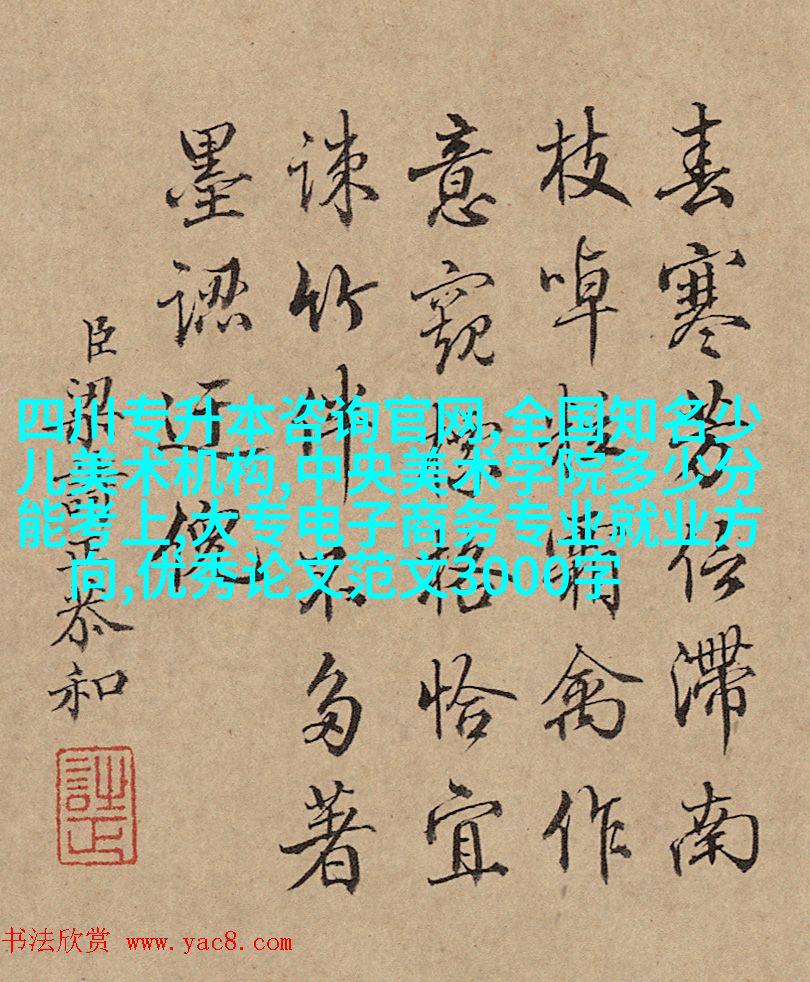 春寒芳信滯南
枝啅禽作
意窺格恰宜
竹伴不多著
墨認
臣梁詩正恭和
四川专升本咨询官网,全国知名少
儿美术机构,中央美术学院多少分
能考上,大专电子商务专业就业方
向,优秀论文范文3000字
书法欣赏 www.yac8.com